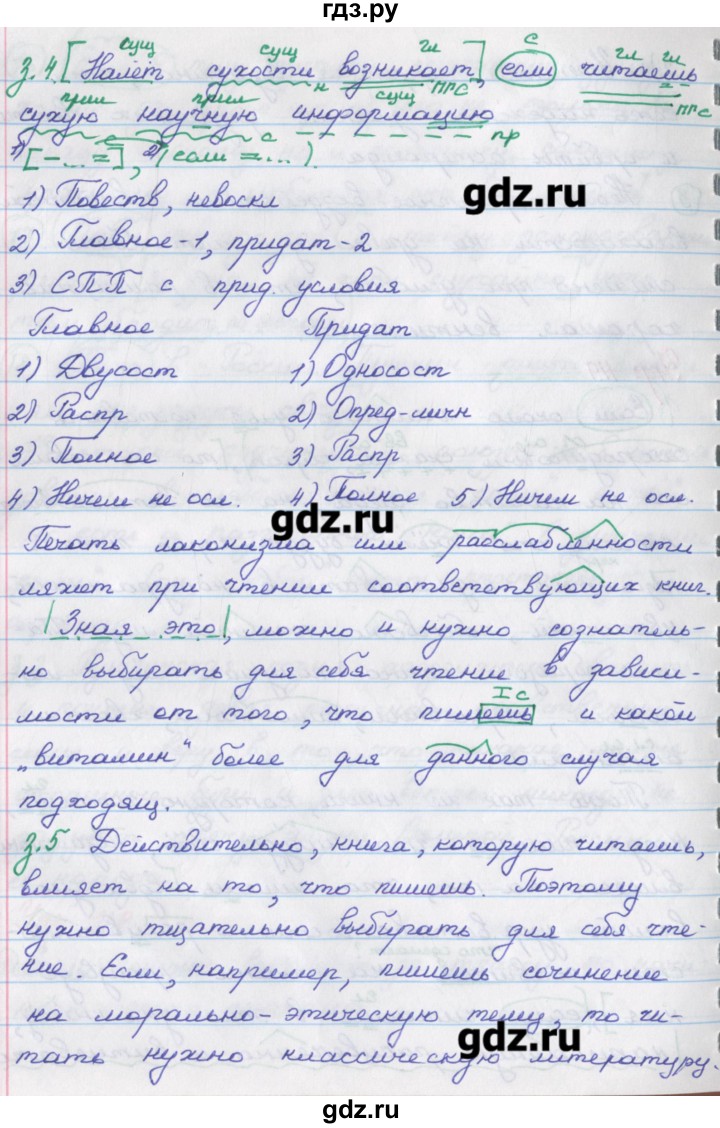 гдз.ру
сущ сущ гл с гл гл
з.4. [Налёт сухости возникает], если читаешь
прил прил н ПГС сущ ПГС
сухую научную информацию
с пр
1) [- ... =], 2) (если = ...).
1) Повеств, невоскл
gdz.ru
2) Главное-1, придат-2
3) СПП с прид. условия
Главное Придат
1) Двусост 1) Односост
2) Распр 2) Опред-личн
3) Полное 3) Распр
4) Ничем не осл. 4) Полное 5) Ничем не осл.
gdz.ru
Печать лаконизма или расслабленности
ляжет при чтении соответствующих книг.
|Зная это|, можно и нужно сознатель-
но выбирать для себя чтение в зависи-
I с
мости от того, что пишешь и какой
„витамин" более для данного случая
подходящ.
з.5 Действительно, книга, которую читаешь,
влияет на то, что пишешь. Поэтому
нужно тщательно выбирать для себя чте-
ние. Если, например, пишешь сочинение
на морально-этическую тему, то чи-
gdz.ru
тать нужно классическую литературу.
gdz.ru